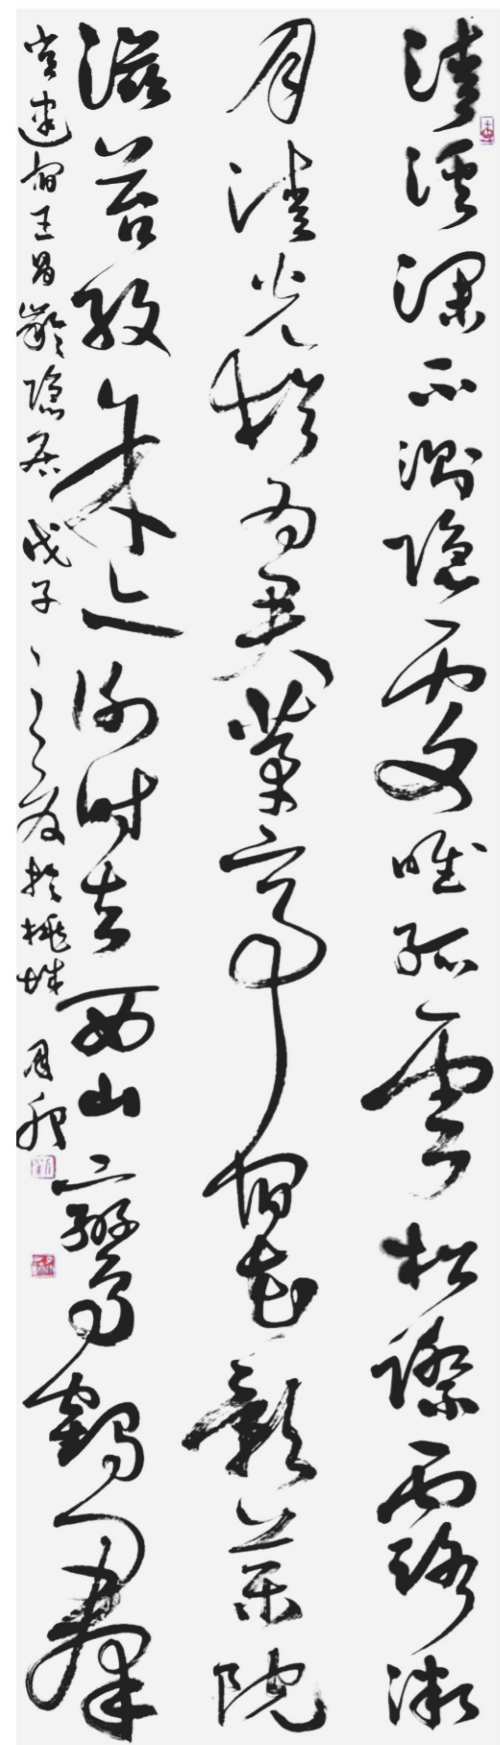 清溪深不測隱處唯孤雲松際露微
月清光猶為君茅亭宿花影藥院
滋苔紋余亦謝時去西山鸞鶴羣
常建宿王昌齡隱居 戊子之夏於桃城